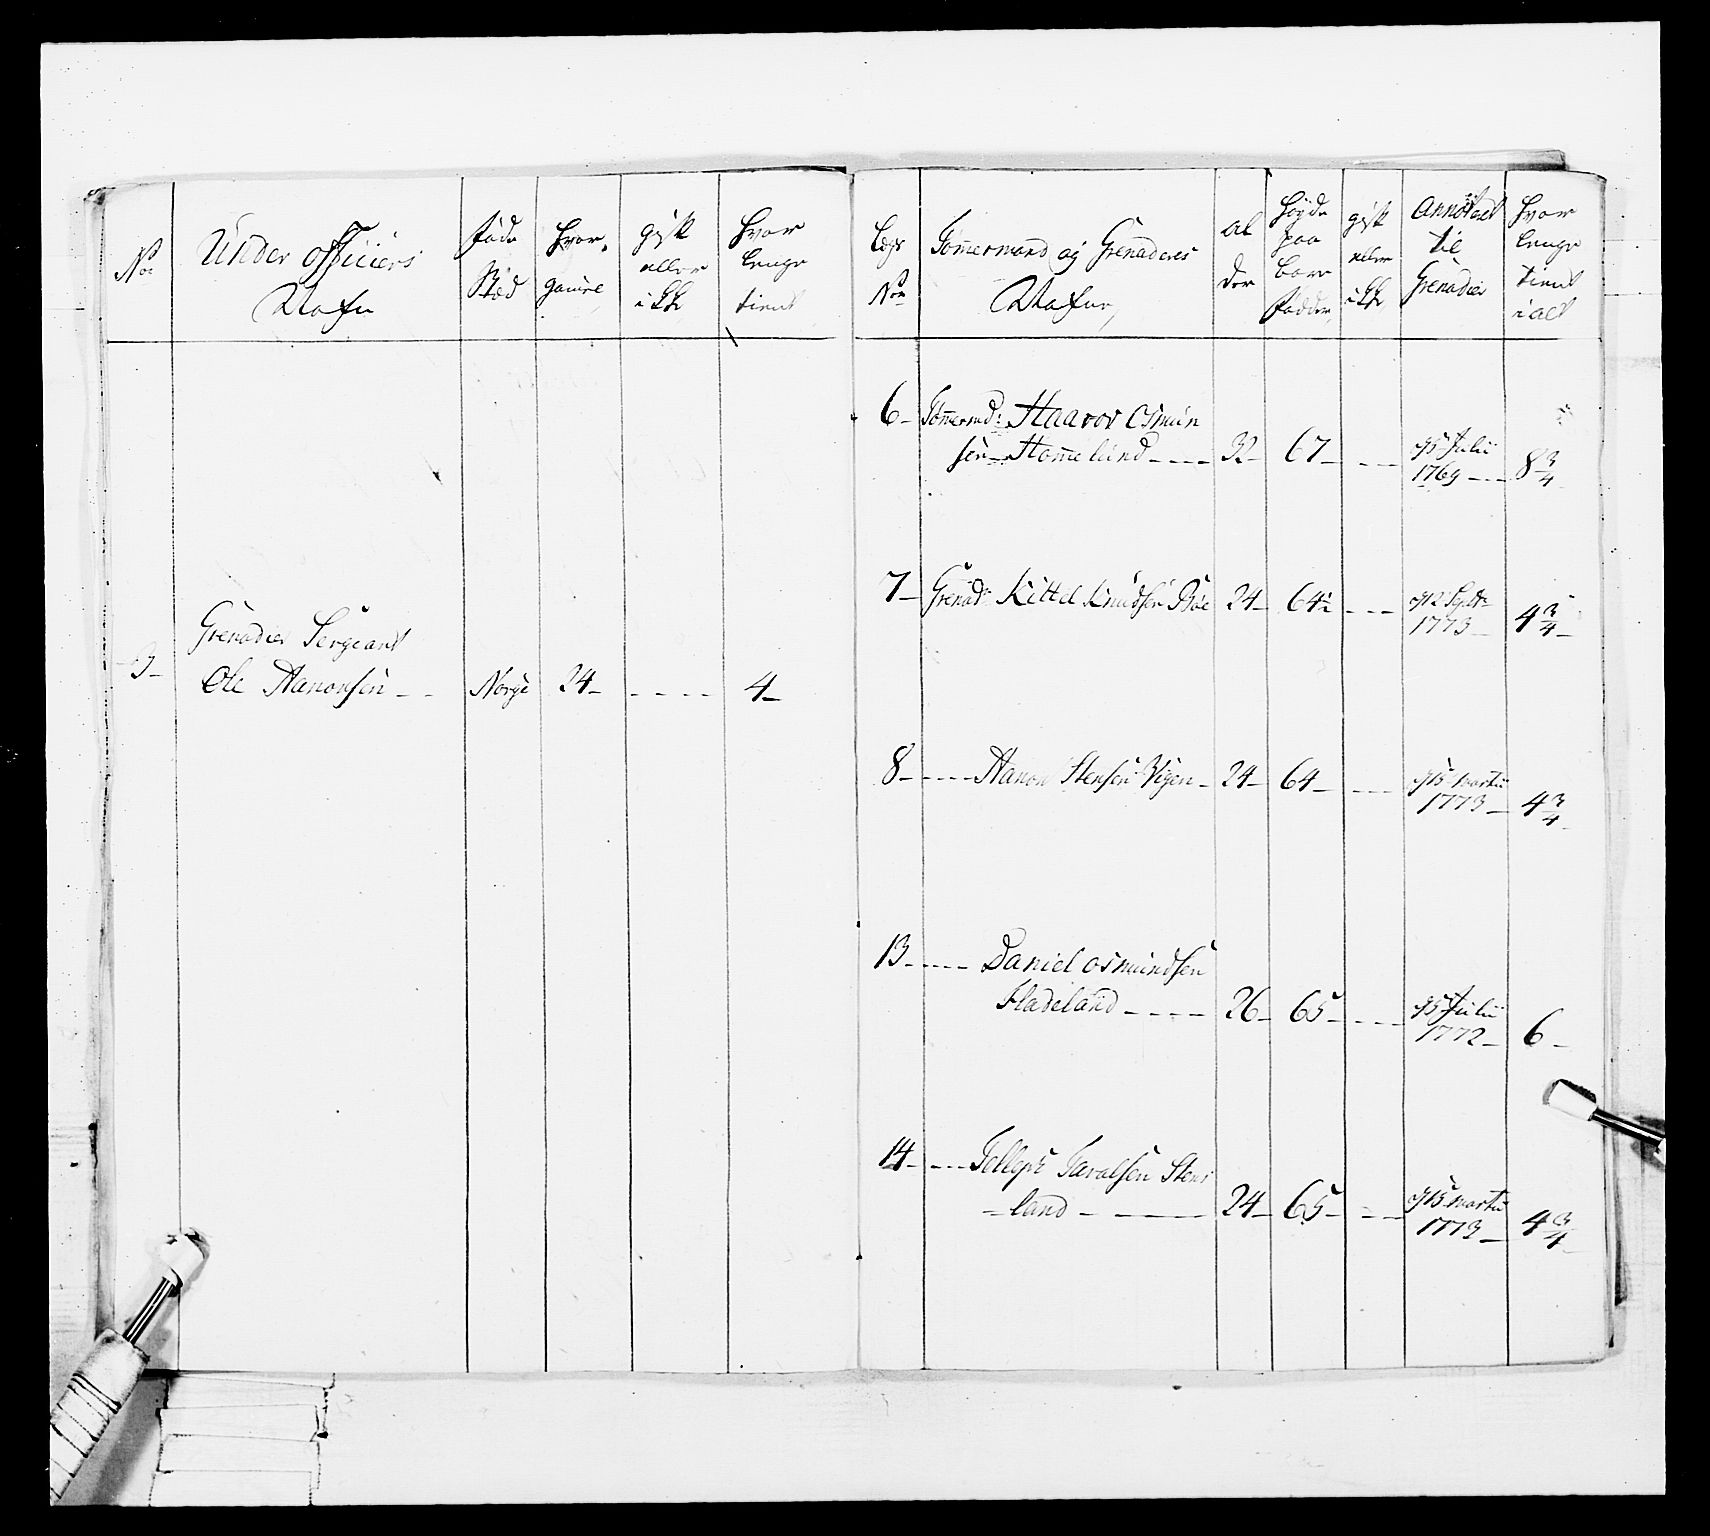 No
Under officiers
Nafn
føde
Stæd
hvor
gamle
gift
eller
ikke
hvor
lenge
tient
3 -
Grenadier Sergeant
Ole Aanonsen - -
Norge
24 -
- - - -
4 -
Legs
No
Tømermænd og Grenaderes
Nafne,
al
der
høyde
paa
bare
fødder
gift
eller
ikke
Annotert
til
Grenadier
hvor
lenge
tient
i alt
6 - Tømermd: Haavor Osmun
sen - Homelund - - - - 32 - 67 - - - - d 5 Julii
1769 - - - 8 3/4
7 - Grenad: Kittel Knudsen Bøe 24 - 64 1/2 - - - d 12 Septr
1773 - 4 3/4 -
8 - - - - - Aanon Stensen Vigen - 24 - 64 - - - - d 15 Martii
1773 - 4 3/4 -
13 - - - - - Daniel Osmundsen
Fladeland - - - - 26 - 65 - - - - d 5 Julii
1772 - 6 -
14 - - - - Tellef Taralsen Stens
= land - - - - - 24 - 65 - - - - d 15 Martii
1773 - 4 3/4 -